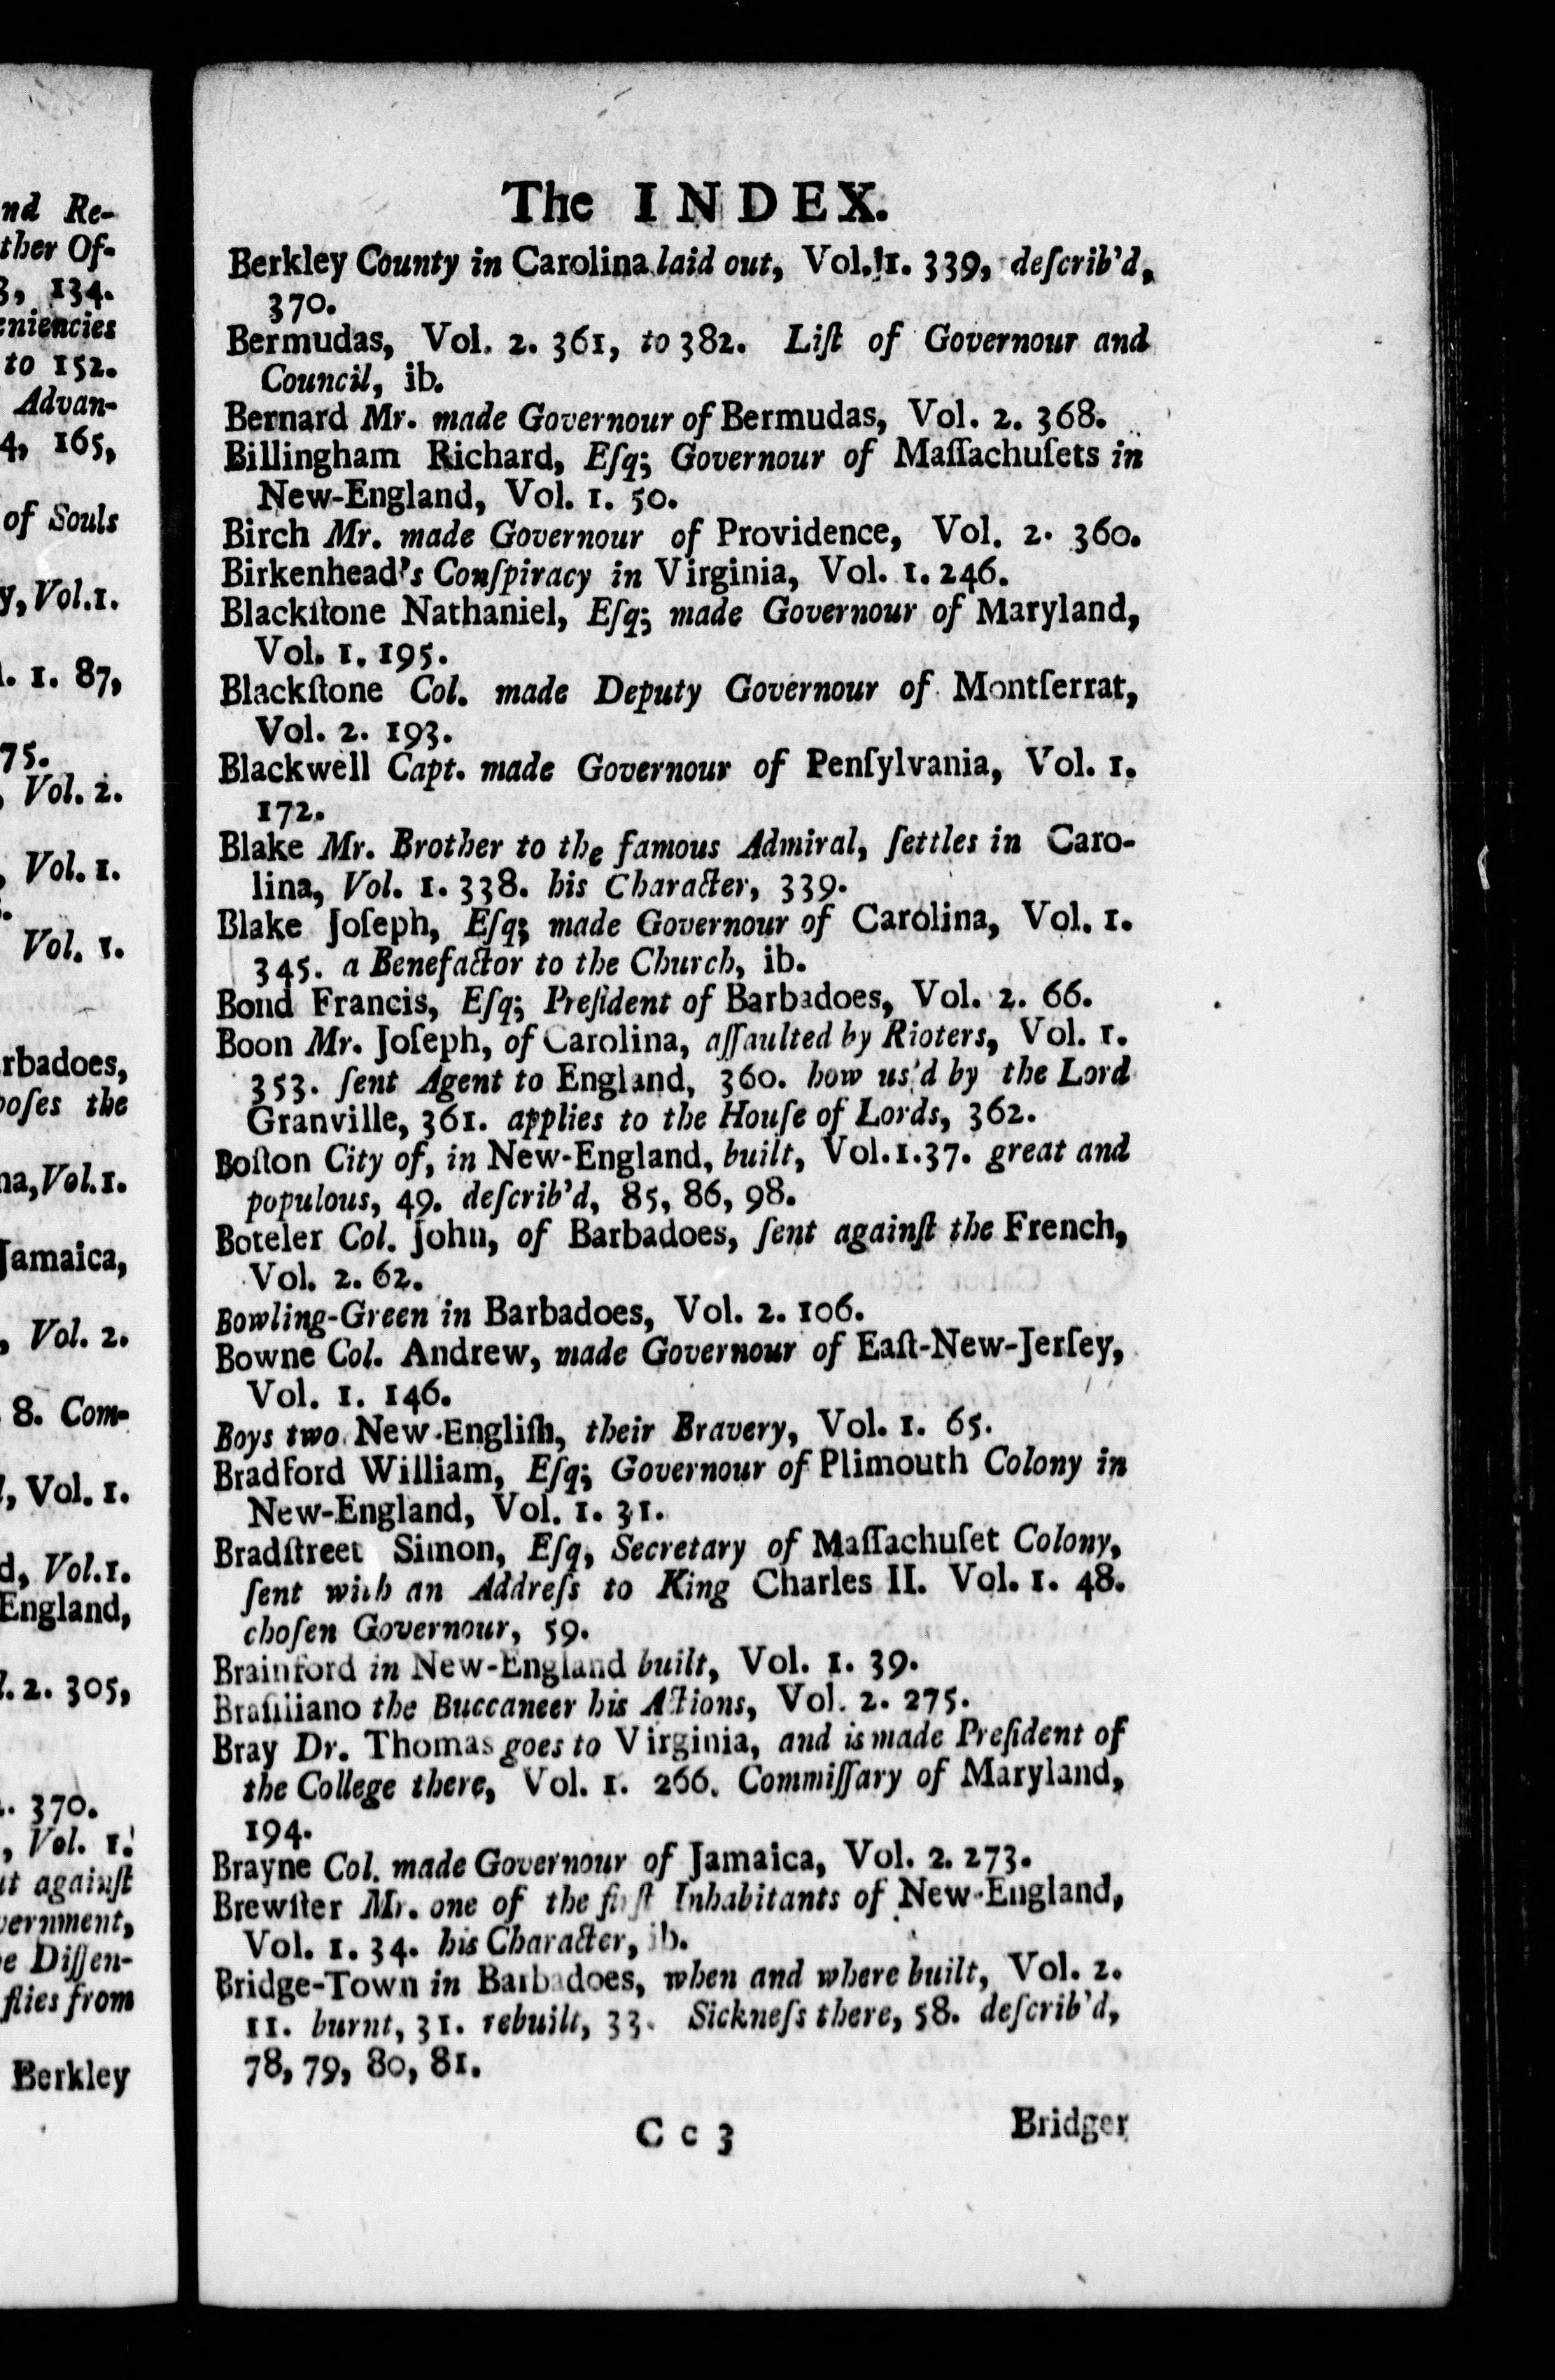 nd Re-
ther Of-
3, 134.
eniencies
to 152.
Advan-
4, 165,
of Souls
y, Vol.1.
. 1. 87,
75.
, Vol. 2.
, Vol. 1.
Vol. 1.
rbadoes,
poſes the
na, Vol. 1.
Jamaica,
, Vol. 2.
8. Com-
, Vol. 1.
d, Vol.1.
England,
. 2. 305,
. 370.
, Vol. 1.
it againſt
vernment,
e Diſſen-
flies from
Berkley
The INDEX.
Berkley County in Carolina laid out, Vol. 1. 339, deſcrib'd,
370.
Bermudas, Vol. 2. 361, to 382. Liſt of Governour and
Council, ib.
Bernard Mr. made Governour of Bermudas, Vol. 2. 368.
Billingham Richard, Eſq; Governour of Maſſachuſets in
New-England, Vol. 1. 50.
Birch Mr. made Governour of Providence, Vol. 2. 360.
Birkenhead's Conſpiracy in Virginia, Vol. 1. 246.
Blackſtone Nathaniel, Eſq; made Governour of Maryland,
Vol. 1. 195.
Blackſtone Col. made Deputy Governour of Montſerrat,
Vol. 2. 193.
Blackwell Capt. made Governour of Penſylvania, Vol. 1.
172.
Blake Mr. Brother to the famous Admiral, ſettles in Caro-
lina, Vol. 1. 338. his Character, 339.
Blake Joſeph, Eſq; made Governour of Carolina, Vol. 1.
345. a Benefactor to the Church, ib.
Bond Francis, Eſq; Preſident of Barbadoes, Vol. 2. 66.
Boon Mr. Joſeph, of Carolina, aſſaulted by Rioters, Vol. 1.
353. ſent Agent to England, 360. how us'd by the Lord
Granville, 361. applies to the Houſe of Lords, 362.
Boſton City of, in New-England, built, Vol. 1. 37. great and
populous, 49. deſcrib'd, 85, 86, 98.
Boteler Col. John, of Barbadoes, ſent againſt the French,
Vol. 2. 62.
Bowling-Green in Barbadoes, Vol. 2. 106.
Bowne Col. Andrew, made Governour of Eaſt-New-Jerſey,
Vol. 1. 146.
Boys two New-Engliſh, their Bravery, Vol. 1. 65.
Bradford William, Eſq; Governour of Plimouth Colony in
New-England, Vol. 1. 31.
Bradſtreet Simon, Eſq, Secretary of Maſſachuſet Colony,
ſent with an Addreſs to King Charles II. Vol. 1. 48.
choſen Governour, 59.
Brainford in New-England built, Vol. 1. 39.
Braſiliano the Buccaneer his Actions, Vol. 2. 275.
Bray Dr. Thomas goes to Virginia, and is made Preſident of
the College there, Vol. 1. 266. Commiſſary of Maryland,
194.
Brayne Col. made Governour of Jamaica, Vol. 2. 273.
Brewſter Mr. one of the firſt Inhabitants of New-England,
Vol. 1. 34. his Character, ib.
Bridge-Town in Barbadoes, when and where built, Vol. 2.
11. burnt, 31. rebuilt, 33. Sickneſs there, 58. deſcrib'd,
78, 79, 80, 81.
C c 3 Bridger